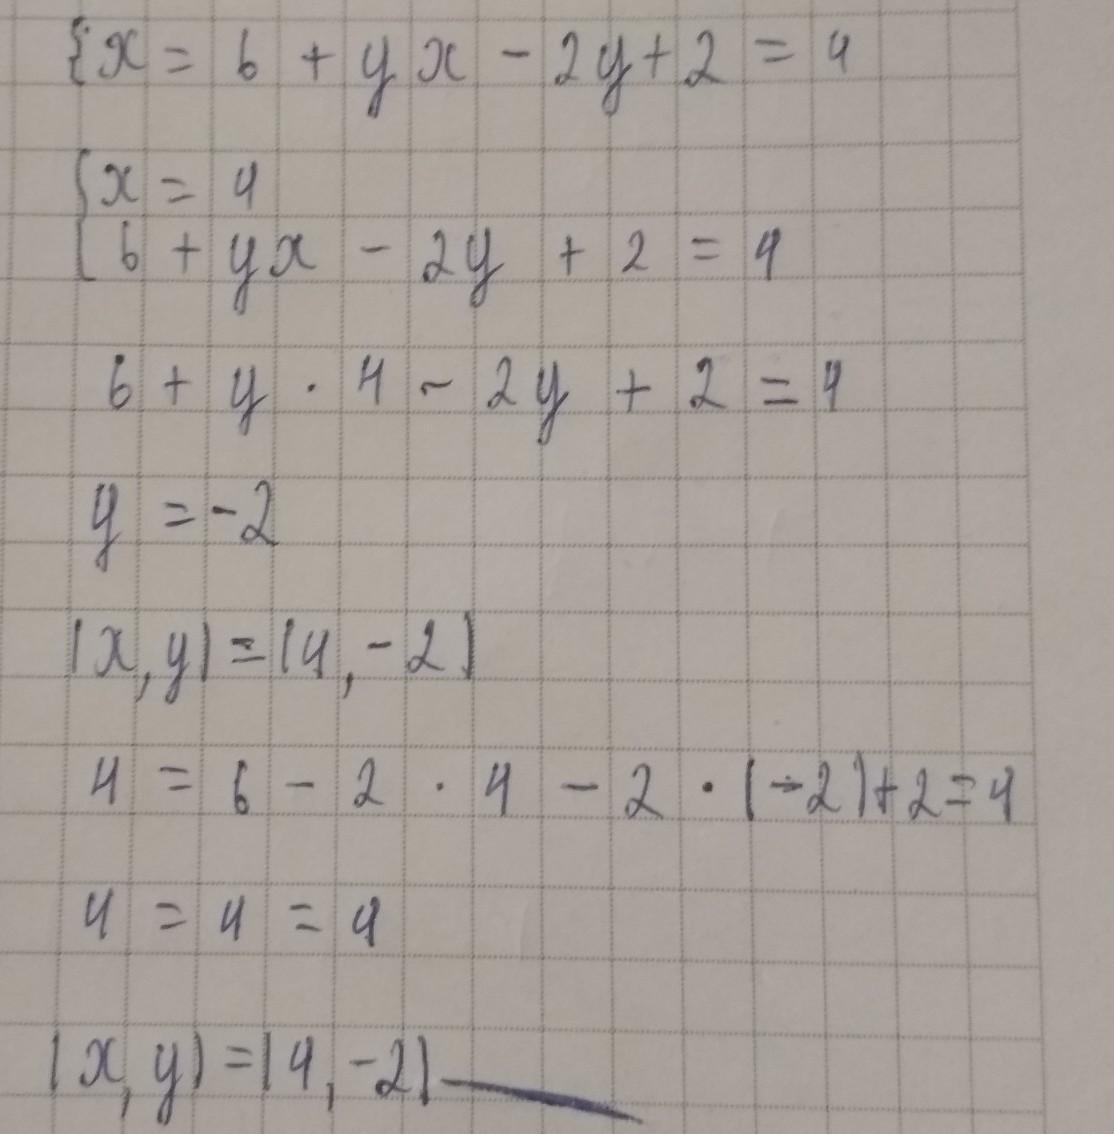 {x = 6 + yx - 2y + 2 = 4
{x = 4
6 + yx - 2y + 2 = 4
6 + y · 4 - 2y + 2 = 4
y = -2
(x, y) = (4, -2)
4 = 6 - 2 · 4 - 2 · (-2) + 2 = 4
4 = 4 = 4
(x, y) = (4, -2)